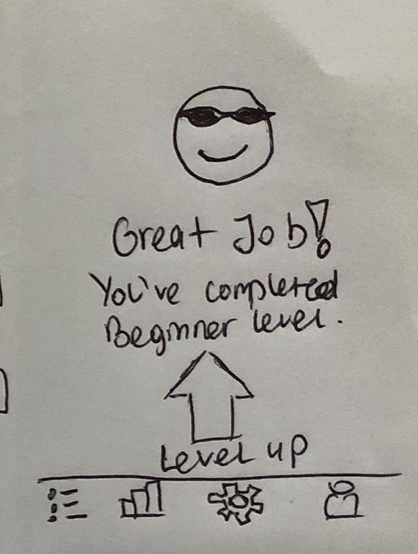 Great Job!
You've completed
Beginner level.
Level up